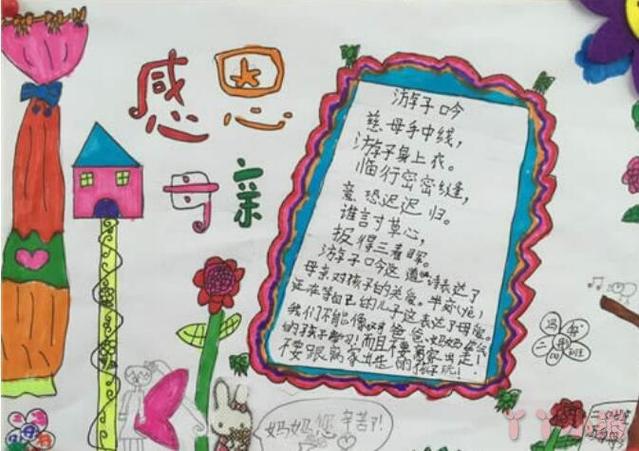 感恩
母亲
游子吟
慈母手中线,
游子身上衣。
临行密密缝,
意恐迟迟归。
谁言寸草心,
报得三春晖。
游子吟这道诗表达了
母亲对孩子的关爱。半夜(
还在等自己的儿子这表达了母爱。
我们不能像 爸爸、妈妈
的孩子学习!而且不要离家出走!
不要跟离家出走的孩子玩!
妈妈您辛苦了!
二 班